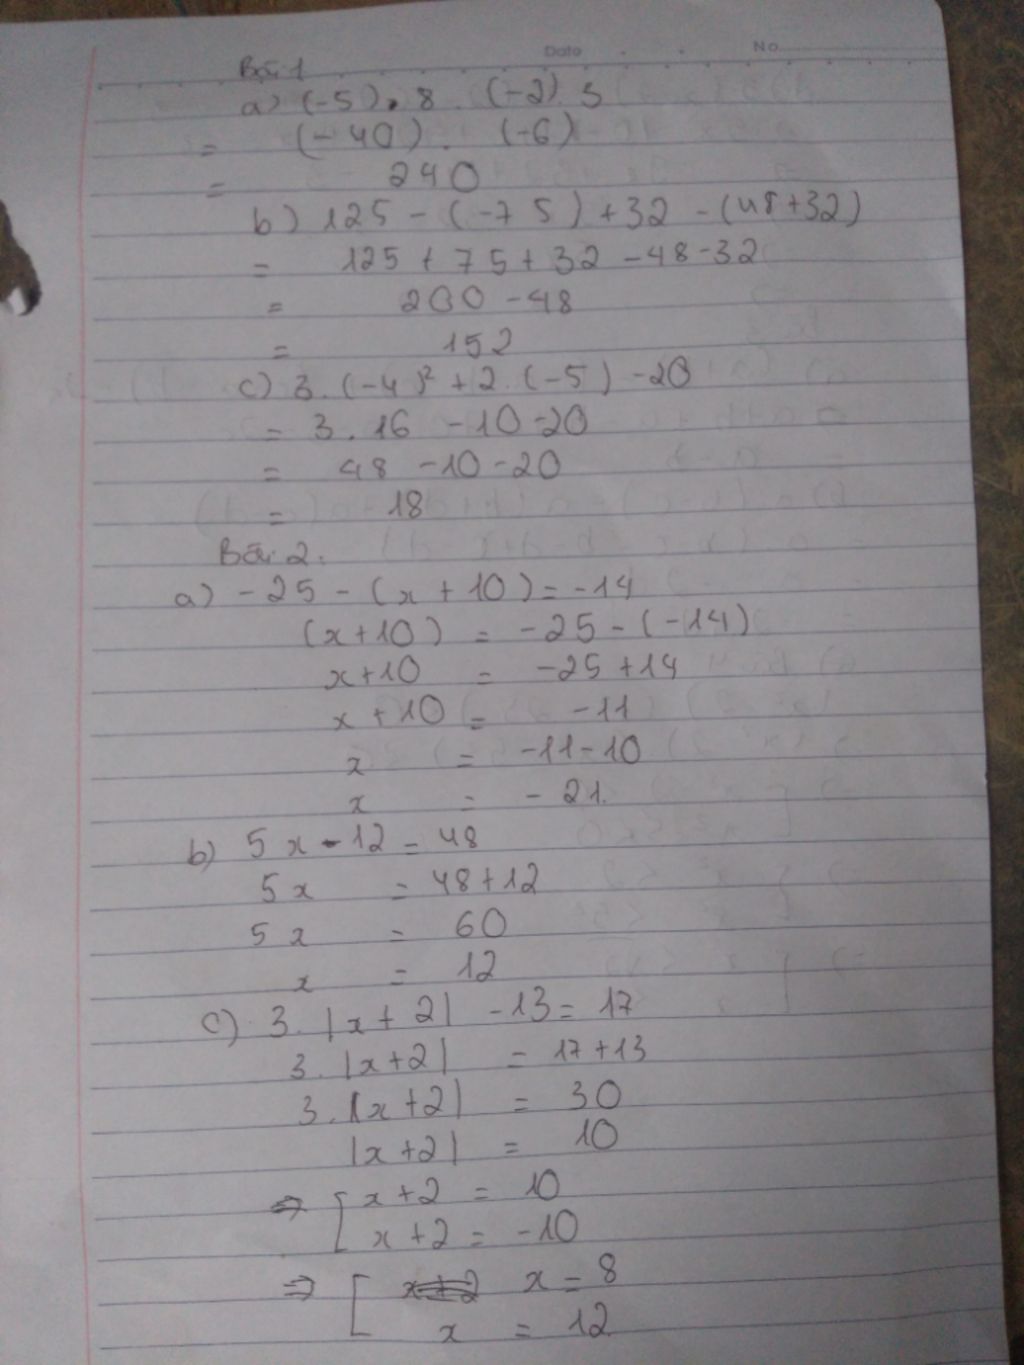 Date No
Bài 1
a) (-5) . 8 . (-2) 3
= (-40) . (-6)
= 240
b) 125 - (-75) + 32 - (48+32)
= 125 + 75 + 32 - 48 - 32
= 200 - 48
= 152
c) 3. (-4)² + 2. (-5) - 20
= 3 . 16 - 10 - 20
= 48 - 10 - 20
= 18
Bài 2.
a) - 25 - (x + 10) = -14
(x+10) = -25 - (-14)
x+10 = -25 + 14
x + 10 = -11
x = -11 - 10
x = - 21.
b) 5x - 12 = 48
5x = 48 + 12
5x = 60
x = 12
c) 3. |x + 2| - 13 = 17
3. |x+2| = 17 + 13
3. |x+2| = 30
|x+2| = 10
=> [ x+2 = 10
x+2 = -10
=> [ x = 8
x = 12